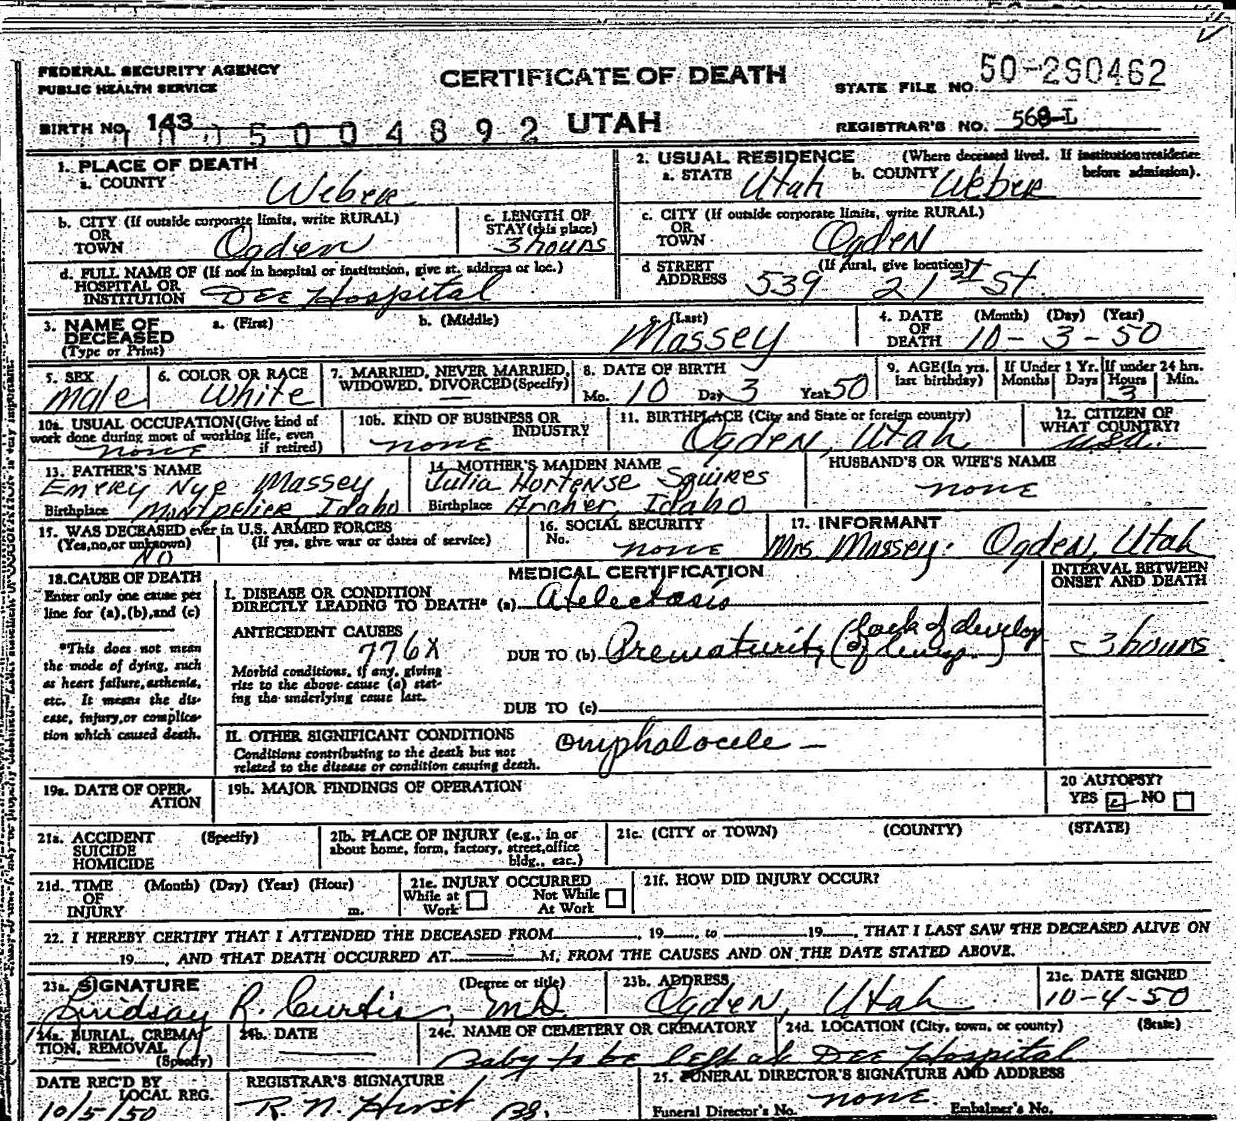 FEDERAL SECURITY AGENCY
PUBLIC HEALTH SERVICE
CERTIFICATE OF DEATH
STATE FILE NO. 50-290462
BIRTH NO. 143
500 4892
UTAH
REGISTRAR'S NO. 568-L
1. PLACE OF DEATH
a. COUNTY Weber
2. USUAL RESIDENCE (Where deceased lived. If institution:residence before admission).
a. STATE Utah b. COUNTY Weber
b. CITY (If outside corporate limits, write RURAL)
OR
TOWN Ogden
c. LENGTH OF
STAY (this place)
3 hours
c. CITY (If outside corporate limits, write RURAL)
OR
TOWN Ogden
d. FULL NAME OF (If not in hospital or institution, give st. address or loc.)
HOSPITAL OR
INSTITUTION Dee Hospital
d STREET (If rural, give location)
ADDRESS 539 21st St.
3. NAME OF
DECEASED
(Type or Print)
a. (First) b. (Middle) c. (Last)
Massey
4. DATE (Month) (Day) (Year)
OF
DEATH 10-3-50
5. SEX
Male
6. COLOR OR RACE
White
7. MARRIED, NEVER MARRIED,
WIDOWED, DIVORCED (Specify)
8. DATE OF BIRTH
Mo. 10 Day 3 Year 50
9. AGE (In yrs. last birthday)
If Under 1 Yr. Months Days
If under 24 hrs. Hours Min.
3
10a. USUAL OCCUPATION (Give kind of
work done during most of working life, even
if retired)
none
10b. KIND OF BUSINESS OR
INDUSTRY
none
11. BIRTHPLACE (City and State or foreign country)
Ogden, Utah
12. CITIZEN OF
WHAT COUNTRY?
USA.
13. FATHER'S NAME
Emery Nye Massey
Birthplace Montpelier Idaho
14. MOTHER'S MAIDEN NAME
Julia Hortense Squires
Birthplace Archer, Idaho
HUSBAND'S OR WIFE'S NAME
none
15. WAS DECEASED ever in U.S. ARMED FORCES
(Yes,no,or unknown) (If yes, give war or dates of service)
No
16. SOCIAL SECURITY
No. none
17. INFORMANT
Mrs Massey. Ogden, Utah
18. CAUSE OF DEATH
Enter only one cause per
line for (a),(b),and (c)
*This does not mean
the mode of dying, such
as heart failure, asthenia,
etc. It means the dis-
ease, injury, or complica-
tion which caused death.
MEDICAL CERTIFICATION
INTERVAL BETWEEN
ONSET AND DEATH
I. DISEASE OR CONDITION
DIRECTLY LEADING TO DEATH* (a) Atelectasis
ANTECEDENT CAUSES
776X
Morbid conditions, if any, giving
rise to the above cause (a) stat-
ing the underlying cause last.
DUE TO (b) Prematurity (lack of develop
3 hours
DUE TO (c)
II. OTHER SIGNIFICANT CONDITIONS
Conditions contributing to the death but not
related to the disease or condition causing death.
Omphalocele -
19a. DATE OF OPER-
ATION
19b. MAJOR FINDINGS OF OPERATION
20 AUTOPSY?
YES NO
21a. ACCIDENT (Specify)
SUICIDE
HOMICIDE
21b. PLACE OF INJURY (e.g., in or
about home, form, factory, street, office
bldg., esc.)
21c. (CITY or TOWN) (COUNTY) (STATE)
21d. TIME (Month) (Day) (Year) (Hour)
OF
INJURY m.
21e. INJURY OCCURRED
While at Work Not While At Work
21f. HOW DID INJURY OCCUR?
22. I HEREBY CERTIFY THAT I ATTENDED THE DECEASED FROM , 19 , to 19 , THAT I LAST SAW THE DECEASED ALIVE ON
19 , AND THAT DEATH OCCURRED AT M, FROM THE CAUSES AND ON THE DATE STATED ABOVE.
23a. SIGNATURE (Degree or title)
Lindsay R. Curtis, MD
23b. ADDRESS
Ogden, Utah
23c. DATE SIGNED
10-4-50
24a. BURIAL, CREMA-
TION, REMOVAL
(Specify)
24b. DATE
24c. NAME OF CEMETERY OR CREMATORY
24d. LOCATION (City, town, or county) (State)
Baby to be left at Dee Hospital
DATE REC'D BY
LOCAL REG.
10/5/50
REGISTRAR'S SIGNATURE
R. N. Hirst
25. FUNERAL DIRECTOR'S SIGNATURE AND ADDRESS
none
Funeral Director's No. Embalmer's No.